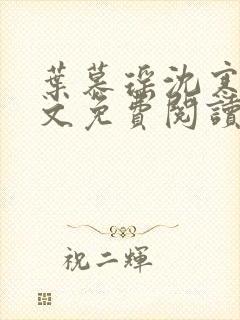 葉慕瑤沈寒
文免費閱讀
祝二輝